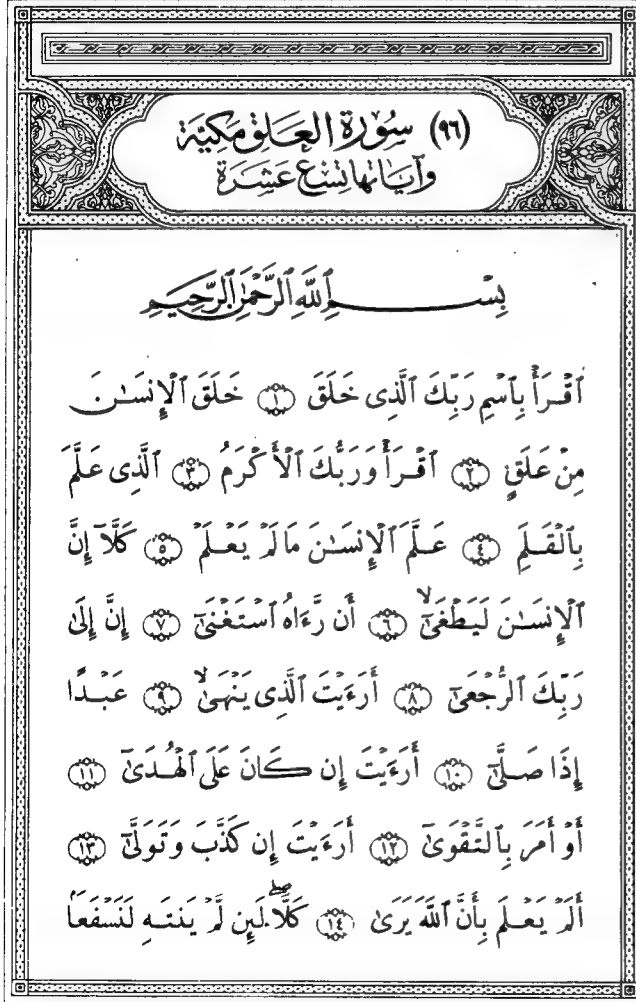 (٩٦) سُورَة العَلَق مَكِيَّة
وَآيَاتُهَا تِسْعَ عَشَرَة
بِسْمِ ٱللَّهِ ٱلرَّحْمَٰنِ ٱلرَّحِيمِ
ٱقْرَأْ بِٱسْمِ رَبِّكَ ٱلَّذِى خَلَقَ ١ خَلَقَ ٱلْإِنسَٰنَ
مِنْ عَلَقٍ ٢ ٱقْرَأْ وَرَبُّكَ ٱلْأَكْرَمُ ٣ ٱلَّذِى عَلَّمَ
بِٱلْقَلَمِ ٤ عَلَّمَ ٱلْإِنسَٰنَ مَا لَمْ يَعْلَمْ ٥ كَلَّآ إِنَّ
ٱلْإِنسَٰنَ لَيَطْغَىٰٓ ۙ ٦ أَن رَّءَاهُ ٱسْتَغْنَىٰٓ ٧ إِنَّ إِلَىٰ
رَبِّكَ ٱلرُّجْعَىٰٓ ٨ أَرَءَيْتَ ٱلَّذِى يَنْهَىٰ ۙ ٩ عَبْدًا
إِذَا صَلَّىٰٓ ١٠ أَرَءَيْتَ إِن كَانَ عَلَى ٱلْهُدَىٰٓ ١١
أَوْ أَمَرَ بِٱلتَّقْوَىٰٓ ١٢ أَرَءَيْتَ إِن كَذَّبَ وَتَوَلَّىٰٓ ١٣
أَلَمْ يَعْلَم بِأَنَّ ٱللَّهَ يَرَىٰ ١٤ كَلَّا ۖ لَئِن لَّمْ يَنتَهِ لَنَسْفَعًۢا